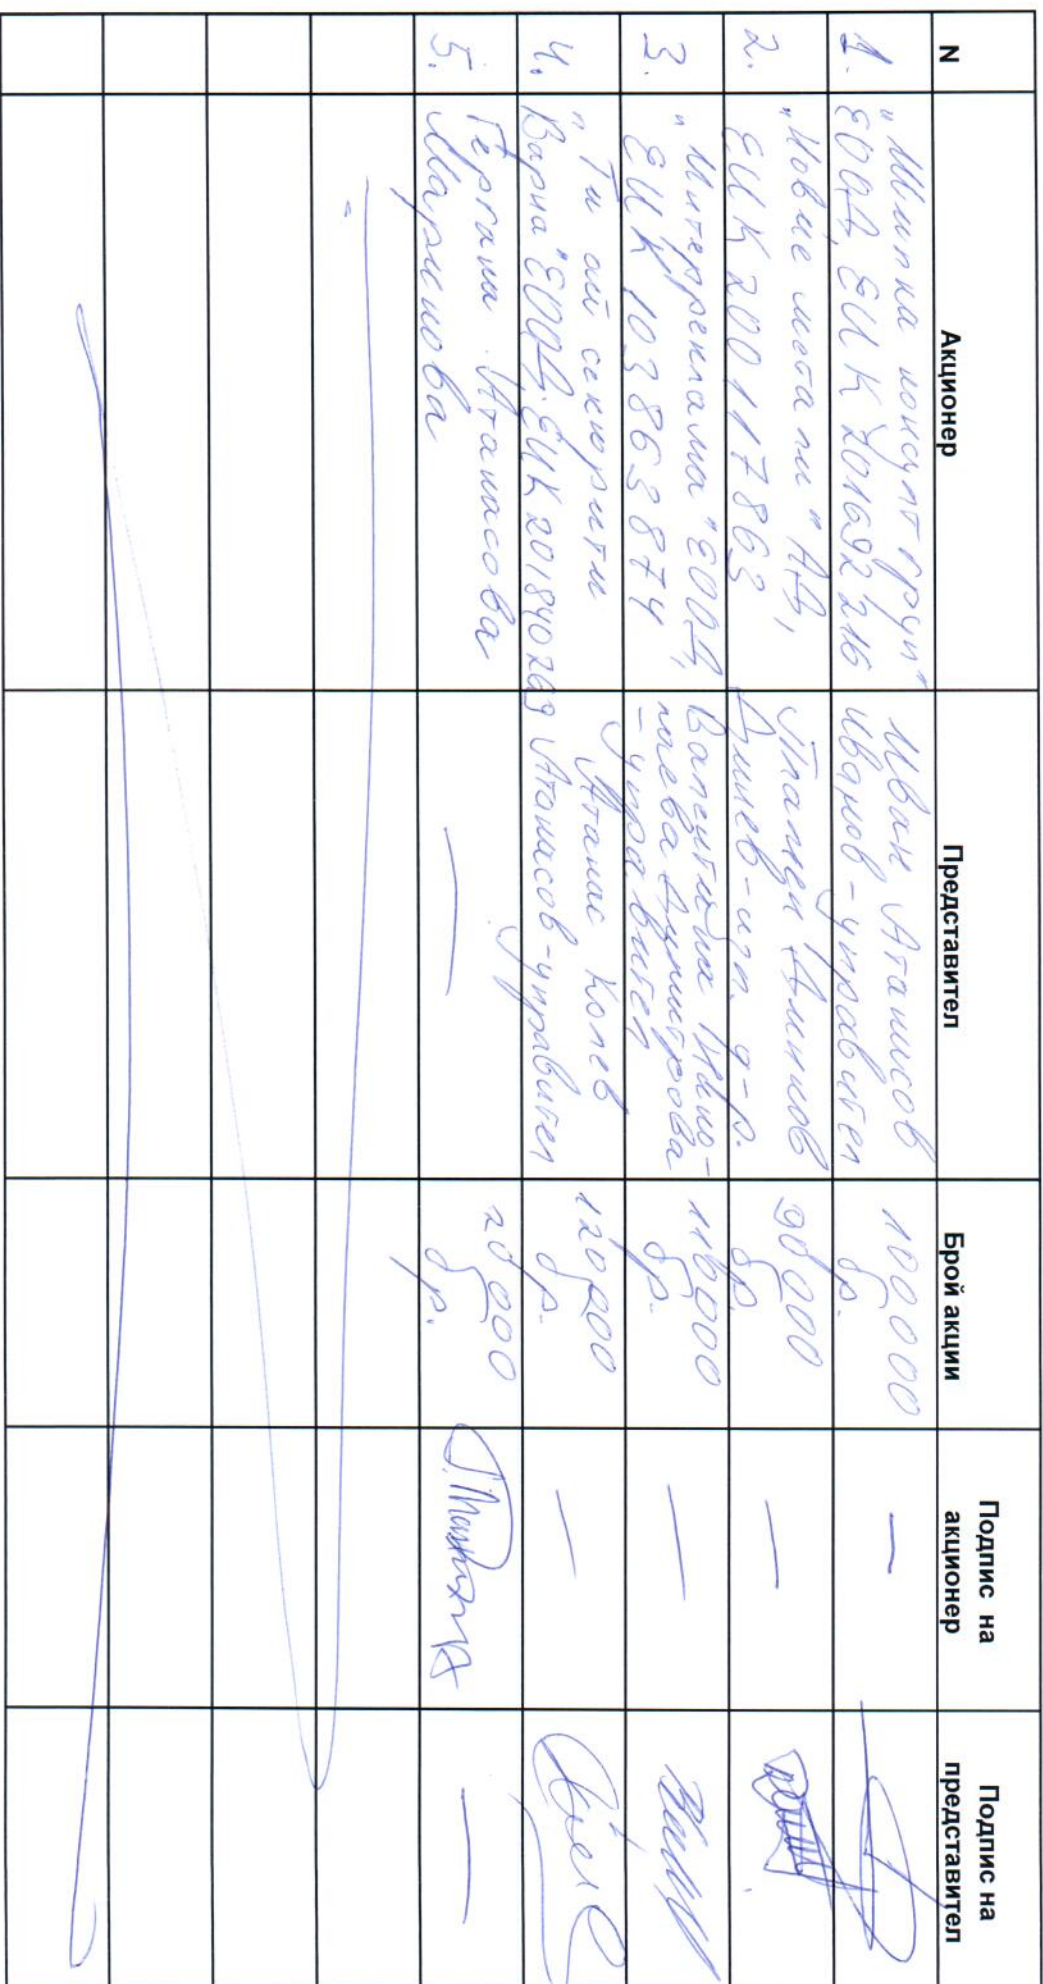 N
Акционер
Представител
Брой акции
Подпис на
акционер
Подпис на
представител
1.
"Шипка консулт груп"
ЕООД, ЕИК 201692216
Иван Атанасов
Иванов - управител
100000
бр.
2.
"Новие метали" АД,
ЕИК 200117863
Пламен
Дилев - изп. д-р.
90000
бр.
3.
"Интерреклама" ЕООД,
ЕИК 103863874
Димитрова
- управител
110000
бр.
4.
"Ти ай секюрити
Варна" ЕООД, ЕИК 201840269
Атанас Колев
Атанасов - управител
120200
бр.
5.
Гергана Атанасова
Маринова
20000
бр.